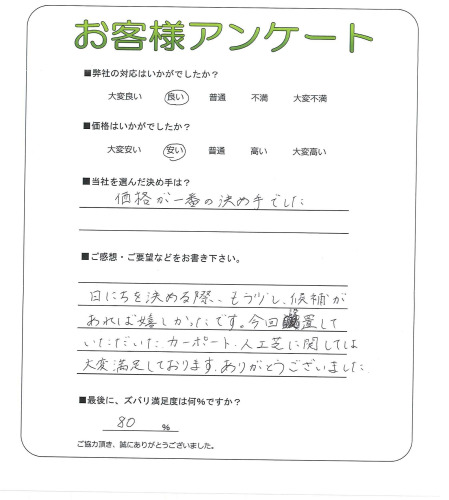 お客様アンケート
■弊社の対応はいかがでしたか？
大変良い　良い　普通　不満　大変不満
■価格はいかがでしたか？
大変安い　安い　普通　高い　大変高い
■当社を選んだ決め手は？
価格が一番の決め手でした
■ご感想・ご要望などをお書き下さい。
日にちを決める際、もう少し、候補が
あれば嬉しかったです。今回設置して
いただいた、カーポート、人工芝に関しては
大変満足しております。ありがとうございました
■最後に、ズバリ満足度は何%ですか？
80 %
ご協力頂き、誠にありがとうございました。